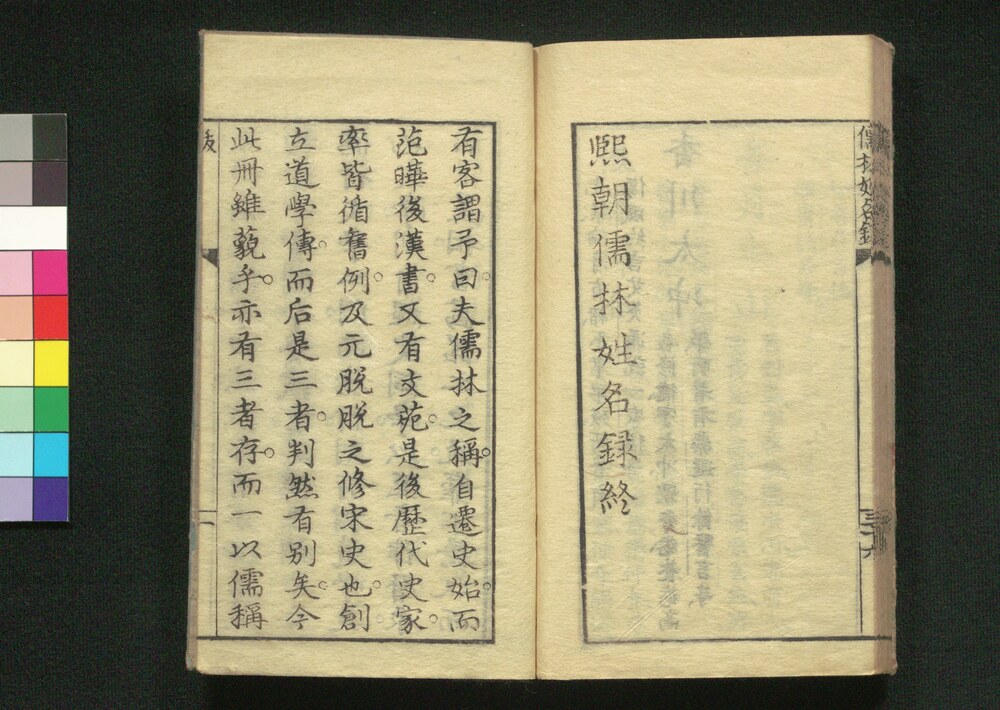 儒林姓名錄
三十六
熙朝儒林姓名録終
有客謂予曰。夫儒林之稱。自遷史始。而
范曄後漢書。又有文苑。是後歷代史家。
率皆循舊例。及元脫脫之修宋史也。創
立道學傳。而后是三者。判然有别矣。今
此冊雖藐乎。亦有三者存。而一以儒稱
跋
一